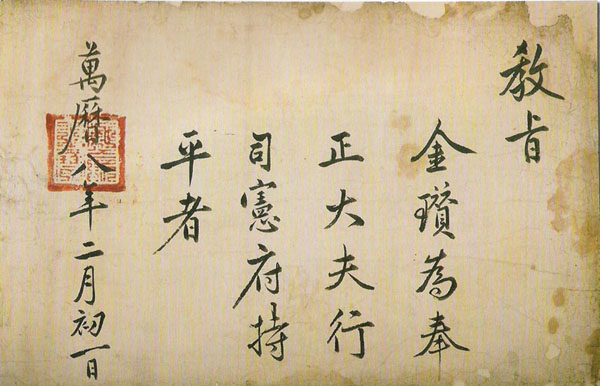 敎旨
金瓚為奉
正大夫行
司憲府持
平者
萬曆八年二月初一日